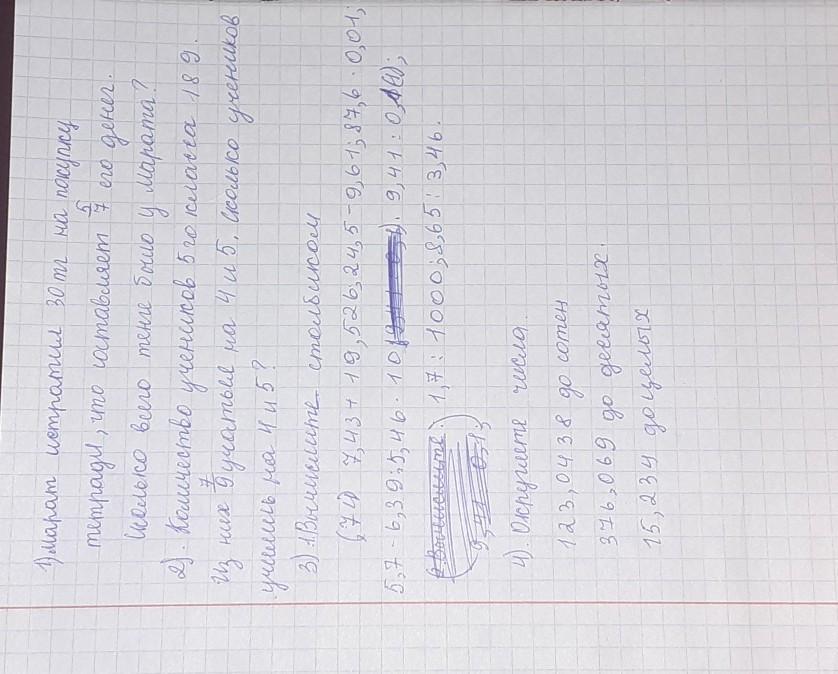 1) Марат истратил 30 тг на покупку
тетради, что составляет 5/7 его денег.
Сколько всего тенге было у Марата?
2). Количество учеников 5 го класса 189.
Из них 7/9 учатые на 4 и 5. Сколько учеников
учились на 4 и 5?
3) 1Вычислите столбиком
(74) 7,43 + 19,526; 24,5 - 9,61; 87,6 · 0,01;
5,7 - 6,39; 5,46 · 10 9,41 : 0,1
1,7 : 1000; 8,65 : 3,46.
9,41 0,1;
4) Округлите числа
123,0438 до сотен
376,069 до десятых.
15,234 до целых